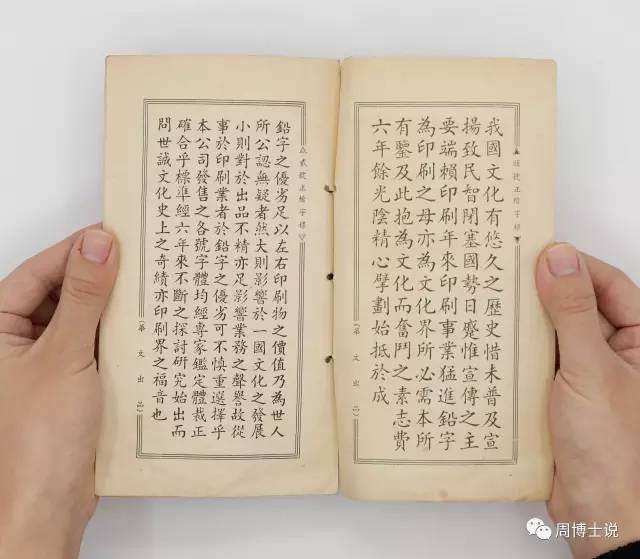 ▲頭號正楷字樣▼
華文出品
我國文化有悠久之歷史惜未普及宣
揚致民智閉塞國勢日蹙惟宣傳之主
要端賴印刷年來印刷事業猛進鉛字
為印刷之母亦為文化界所必需本所
有鑒及此抱為文化而奮鬥之素志費
六年餘光陰精心擘劃始抵於成
貳號正楷字樣
華文出品
鉛字之優劣足以左右印刷物之價值乃為世人
所公認無疑者然大則影響於一國文化之發展
小則對於出品不精亦足影響業務之聲譽故從
事於印刷業者於鉛字之優劣可不慎重選擇乎
本公司發售之各號字體均經專家鑑定體裁正
確合乎標準經六年來不斷之探討研究始出而
問世誠文化史上之奇績亦印刷界之福音也
周博士说